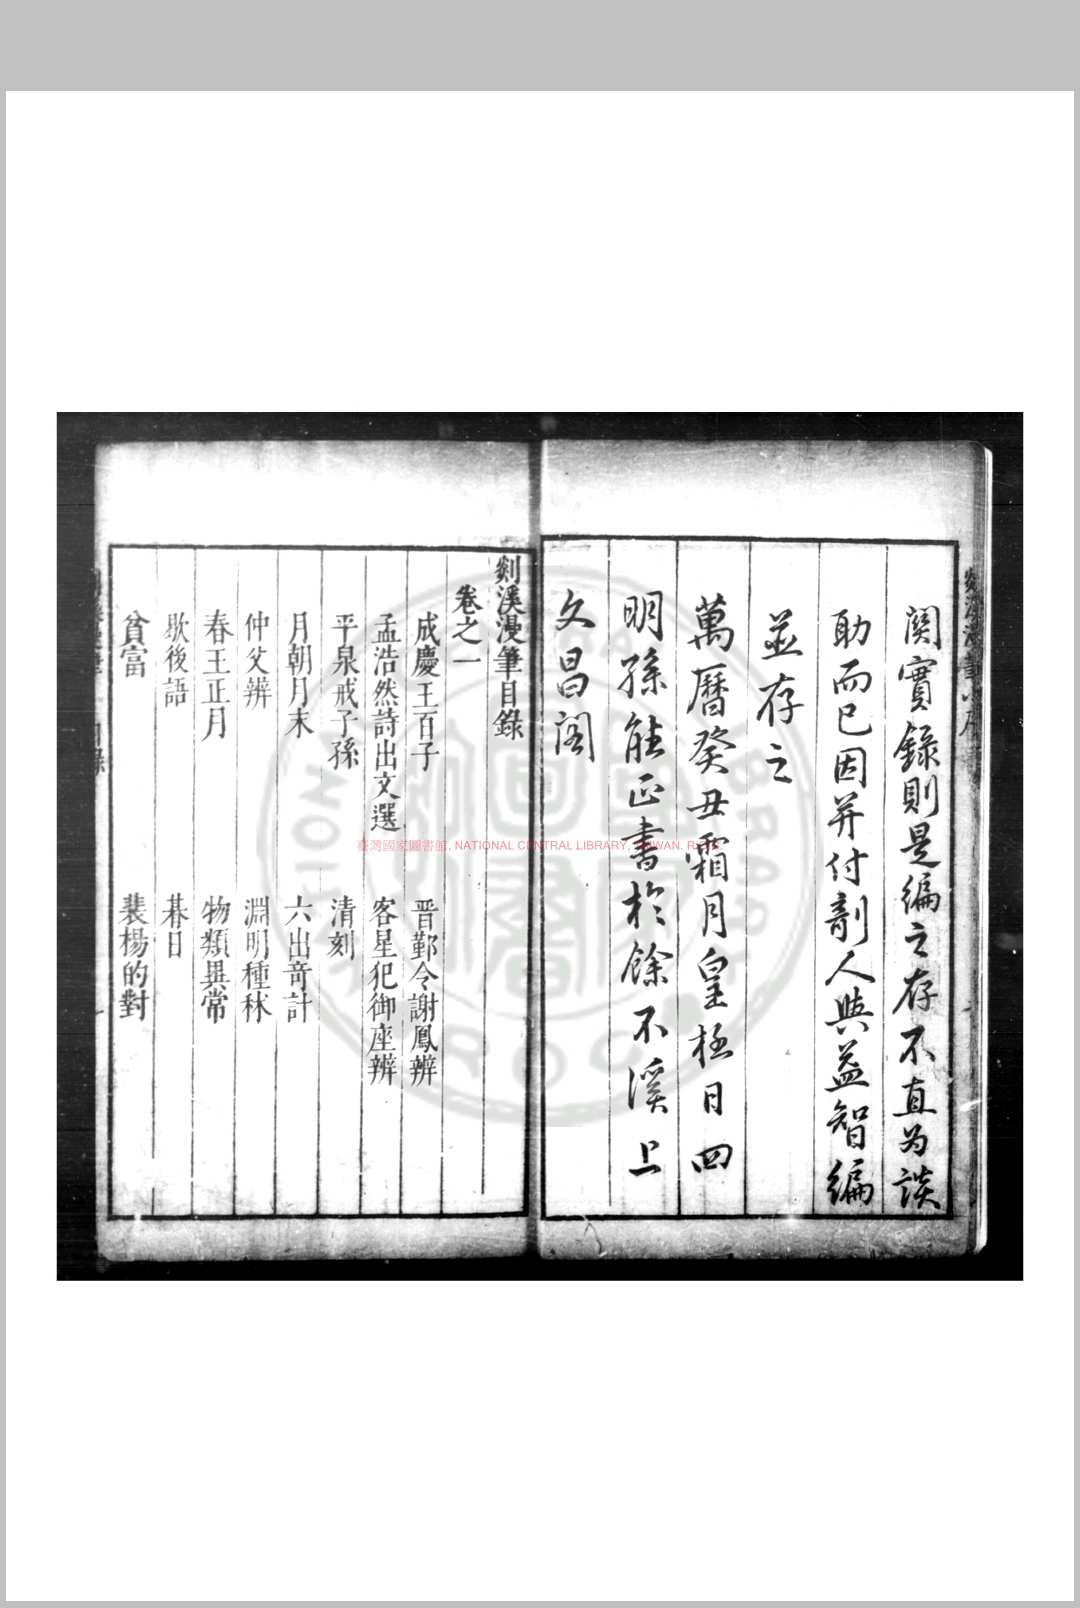 關實錄則是編之存不直為談
助而已因并付剞人與益智編
並存之
萬曆癸丑霜月皇極日四
明孫能正書於餘不溪上
文昌閣
剡溪漫筆目錄
卷之一
成慶王百子 晋鄞令謝鳳辨
孟浩然詩出文選 客星犯御座辨
平泉戒子孫 清刻
月朝月末 六出竒計
仲父辨 淵明種秫
春王正月 物類異常
歇後語 碁日
貧富 裴楊的對
臺灣國家圖書館, NATIONAL CENTRAL LIBRARY, TAIWAN. R.O.C.